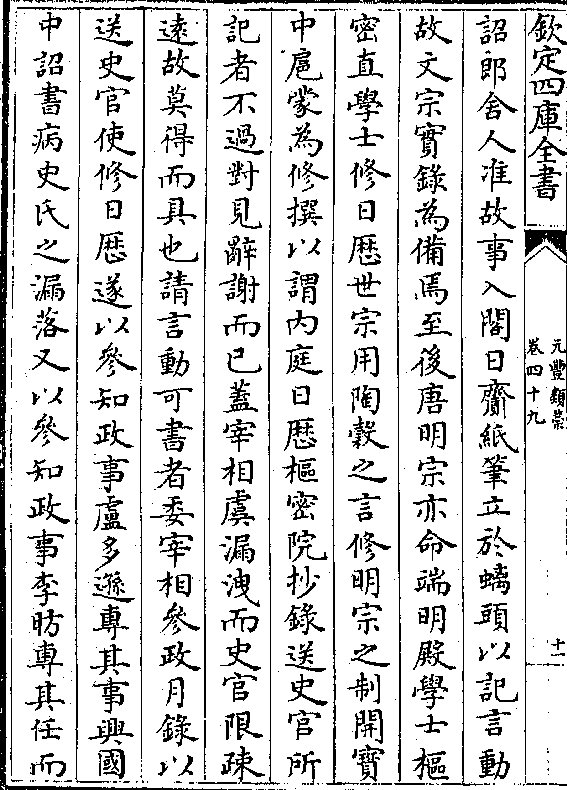 欽定四庫全書
元豐類藁
卷四十九
十一
詔郎舍人准故事入閤日齎紙筆立於螭頭以記言動
故文宗實錄為備焉至後唐明宗亦命端明殿學士樞
密直學士修日厯世宗用陶穀之言修明宗之制開寶
中扈蒙為修撰以謂内庭日厯樞密院抄錄送史官所
記者不過對見辭謝而已蓋宰相虞漏洩而史官限疎
遠故莫得而具也請言動可書者委宰相參政月錄以
送史官使修日厯遂以參知政事盧多遜專其事興國
中詔書病史氏之漏落又以參知政事李昉專其任而